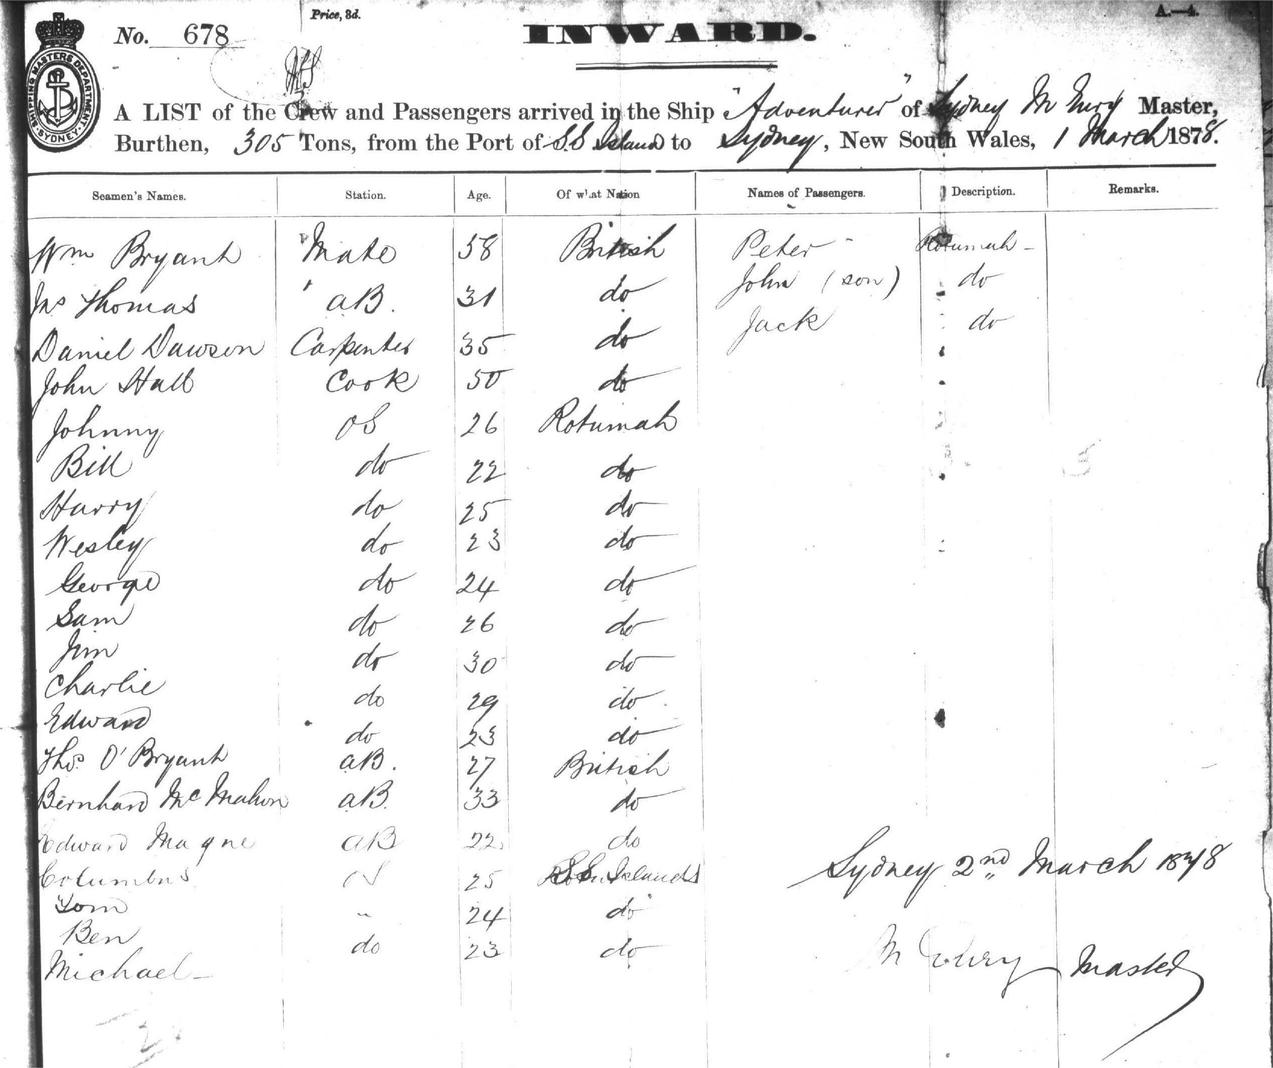 Price, 3d.
A.—4.
No. 678
INWARD.
SHIPPING MASTERS DEPARTMENT SYDNEY
A LIST of the Crew and Passengers arrived in the Ship "Adventurer" of Sydney M Master,
Burthen, 305 Tons, from the Port of SS Island to Sydney, New South Wales, 1 March 1878.
Seamen's Names. Station. Age. Of what Nation Names of Passengers. Description. Remarks.
Wm Bryant Mate 58 British Peter Rotumah
Jns Thomas aB. 31 do John (son) do
Daniel Dawson Carpenter 35 do Jack do
John Hall Cook 50 do
Johnny OS 26 Rotumah
Bill do 22 do
Harry do 25 do
Wesley do 23 do
George do 24 do
Sam do 26 do
Jim do 30 do
Charlie do 29 do
Edward do 23 do
Thos O'Bryant aB. 27 British
Bernhard McMahon aB. 33 do
Edward Magne aB 22 do
Columbus OS 25 SS Islands
Tom " 24 do
Ben do 23 do
Michael
Sydney 2nd March 1878
M Master